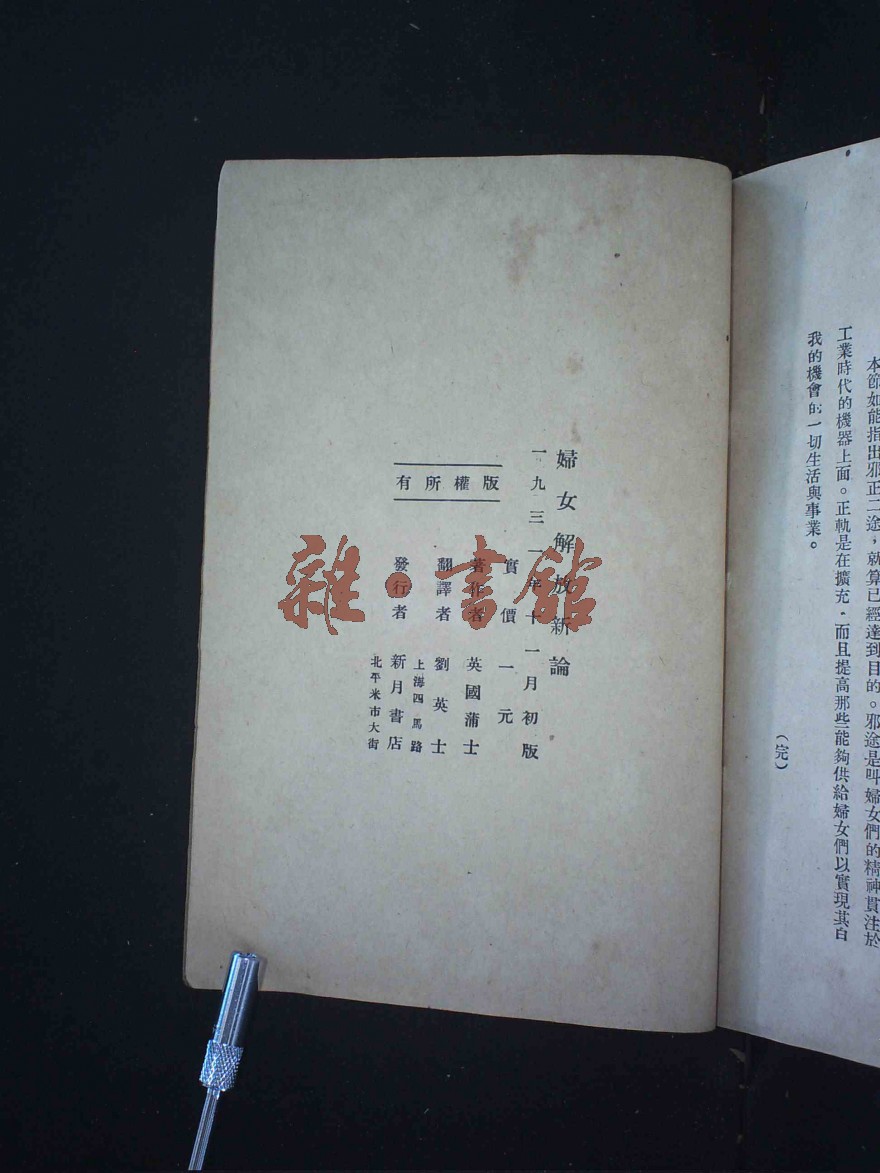 本節如能指出邪正二途，就算已經達到目的。邪途是叫婦女們的精神貫注於
工業時代的機器上面。正軌是在擴充，而且提高那些能夠供給婦女們以實現其自
我的機會的一切生活與事業。
（完）
婦女解放新論
一九三一年十一月初版
實價 一元
著作者 英國蒲士
翻譯者 劉英士
發行者 上海四馬路 新月書店 北平米市大街
版權所有
雜·書館